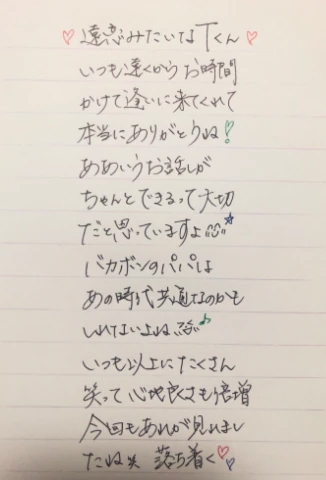 ♡遠恋みたいなTくん♡
いつも遠くからお時間
かけて逢いに来てくれて
本当にありがとうね!
ああいうお話しが
ちゃんとできるって大切
だと思っていますよ☆
バカボンのパパは
あの時代共通なのかも
しれないよね♪
いつも以上にたくさん
笑って心地良さも倍増
今回もあれが見れまし
たね笑 落ち着く♡♡